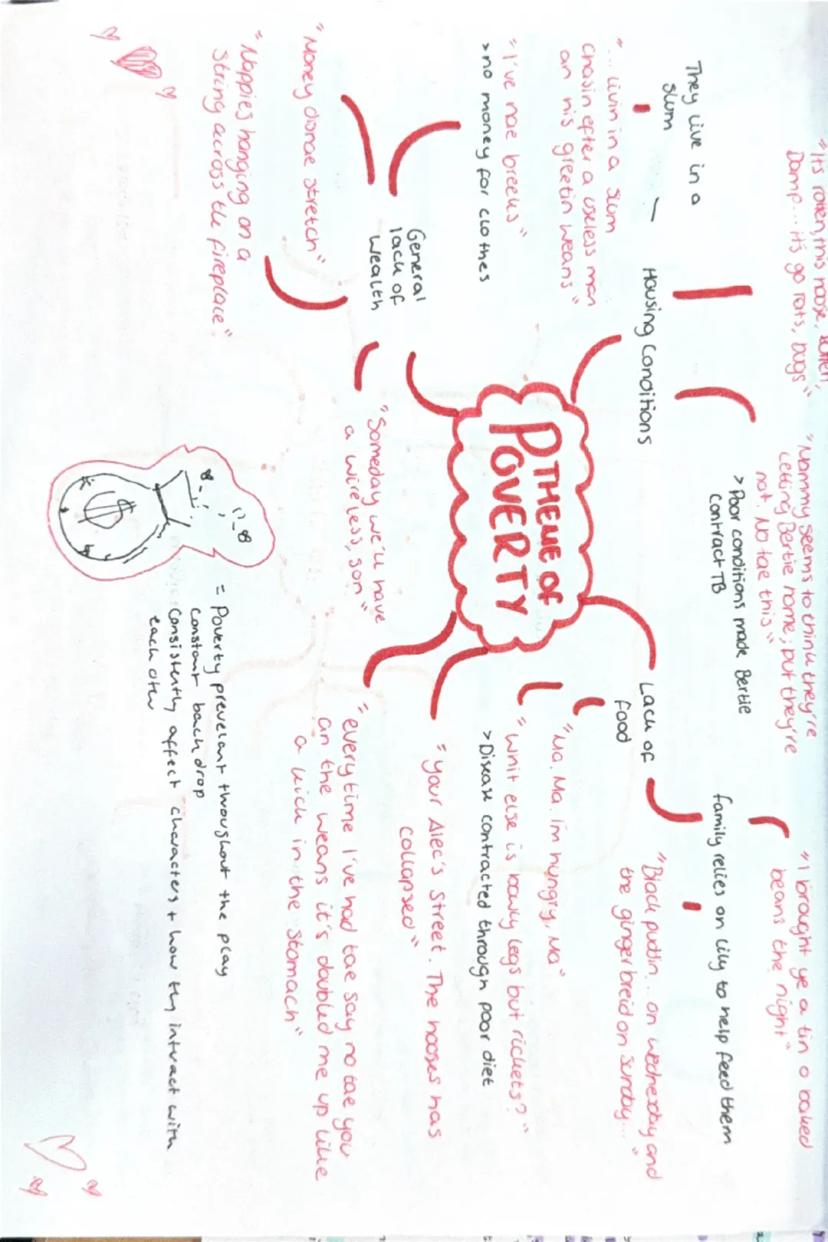 "It's rotten, this hoose. Rotten.
Damp... it's go rats, bugs"
"Mammy seems to think they're
letting Bertie home; but they're
not. No tae this"
> Poor conditions made Bertie
contract TB
"I brought ye a tin o baked
beans the night"
They live in a
slum
Housing Conditions
family relies on Lily to help feed them
"...livin in a slum
chasin efter a useless man
an his greetin weans"
Lack of
food
"Black puddin... on wednesday and
the gingerbreid on sunday..."
"I've nae breeks"
> no money for clothes
THEME OF
POVERTY
"Ma. Ma. I'm hungry, Ma"
"Whit else is bowly legs but rickets?"
> Disease contracted through poor diet
General
lack of
wealth
"Money disnae stretch"
"Nappies hanging on a
string across the fireplace"
"Someday we'll have
a wireless, son"
"your Alec's street. The hooses has
collapsed"
"everytime I've had tae say no tae you
an the weans it's doubled me up like
a kick in the stomach"
$
= Poverty prevelant throughout the play
constant back drop
consistently affect characters + how thy intract with
each other